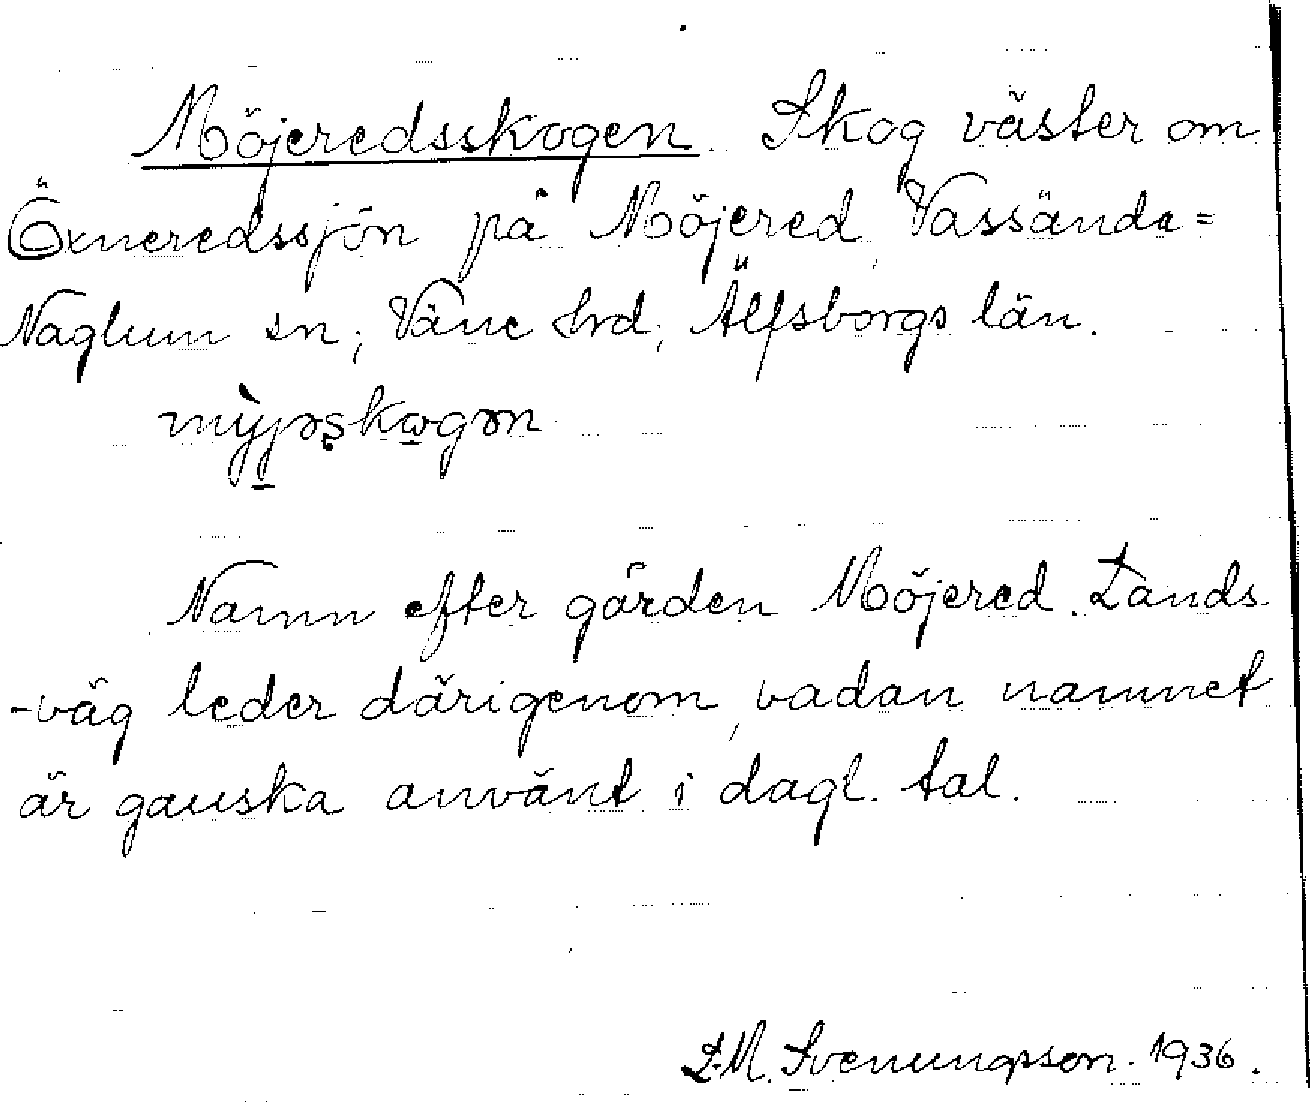 Möjeredsskogen. Skog väster om
Öxneredssjön på Möjered, Vassända=
Naglum sn,Väne hrd, Älfsborgs län.
Namn efter gården Möjered. Lands
-väg leder därigenom, vadan namnet
är ganska använt i dagl. tal.
L.M. Svenungsson. 1936.